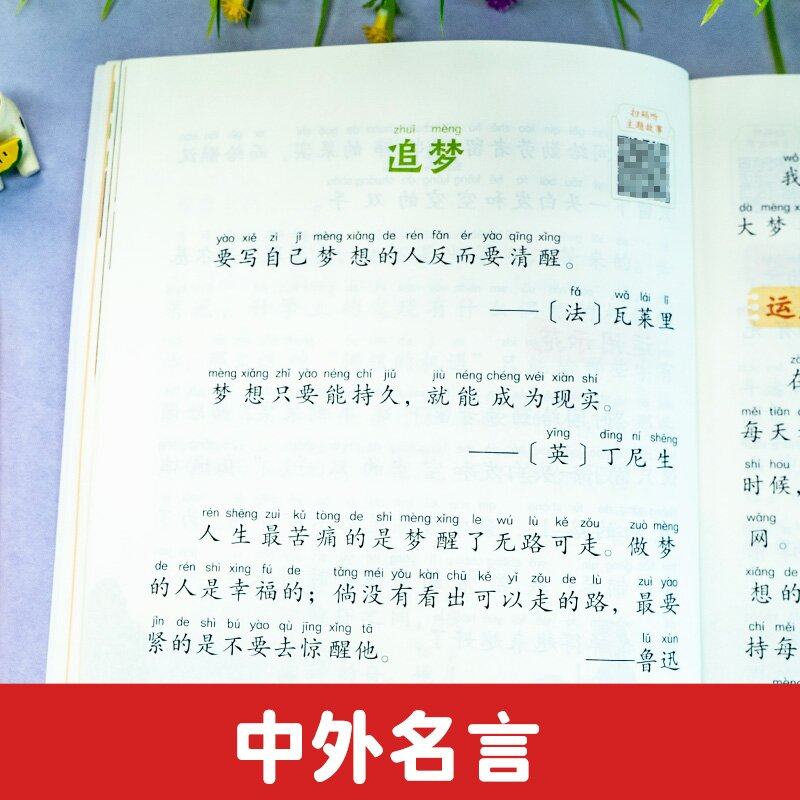 扫码听
主题故事
zhuī mèng
追梦
yào xiě zì jǐ mèng xiǎng de rén fǎn ér yào qīng xǐng
要写自己梦想的人反而要清醒。
fǎ wǎ lái lǐ
——〔法〕瓦莱里
mèng xiǎng zhǐ yào néng chí jiǔ jiù néng chéng wéi xiàn shí
梦想只要能持久，就能成为现实。
yīng dīng ní shēng
——〔英〕丁尼生
rén shēng zuì kǔ tòng de shì mèng xǐng le wú lù kě zǒu zuò mèng
人生最苦痛的是梦醒了无路可走。做梦
de rén shì xìng fú de tǎng méi yǒu kàn chū kě yǐ zǒu de lù zuì yào
的人是幸福的；倘没有看出可以走的路，最要
jǐn de shì bú yào qù jīng xǐng tā
紧的是不要去惊醒他。
lǔ xùn
——鲁迅
wǒ
我
dà mèng
大梦
运
zài
在
měi tiān
每天
shí hou
时候，
wǎng
网。
xiǎng de
想的
chí měi
持每
中外名言